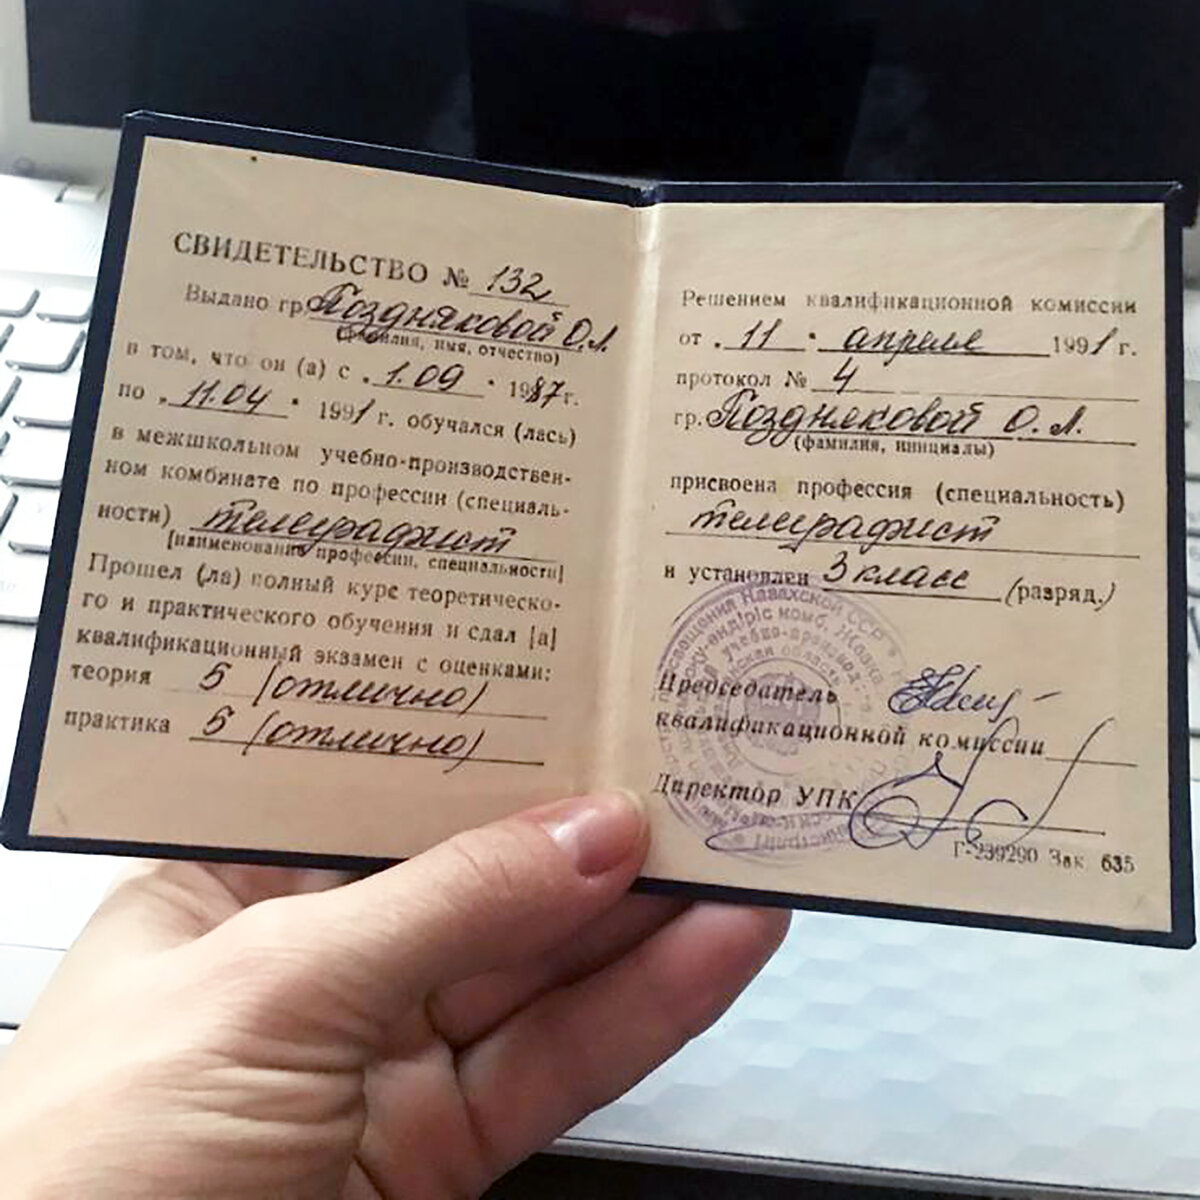 СВИДЕТЕЛЬСТВО № 132
Выдано гр. Поздняковой О.Л.
(фамилия, имя, отчество)
в том, что он (а) с „1.09" 1987г.
по „11.04" 1991 г. обучался (лась)
в межшкольном учебно-производствен-
ном комбинате по профессии (специаль-
ности) телеграфист
[наименование профессии, специальности]
Прошел (ла) полный курс теоретическо-
го и практического обучения и сдал [а]
квалификационный экзамен с оценками:
теория 5 (отлично)
практика 5 (отлично)
Решением квалификационной комиссии
от „11" апреля 1991 г.
протокол № 4
гр. Поздняковой О.Л.
(фамилия, инициалы)
присвоена профессия (специальность)
телеграфист
и установлен 3 класс (разряд.)
Председатель
квалификационной комиссии
Директор УПК
Г-239290 Зак 635
просвещения Казахской ССР